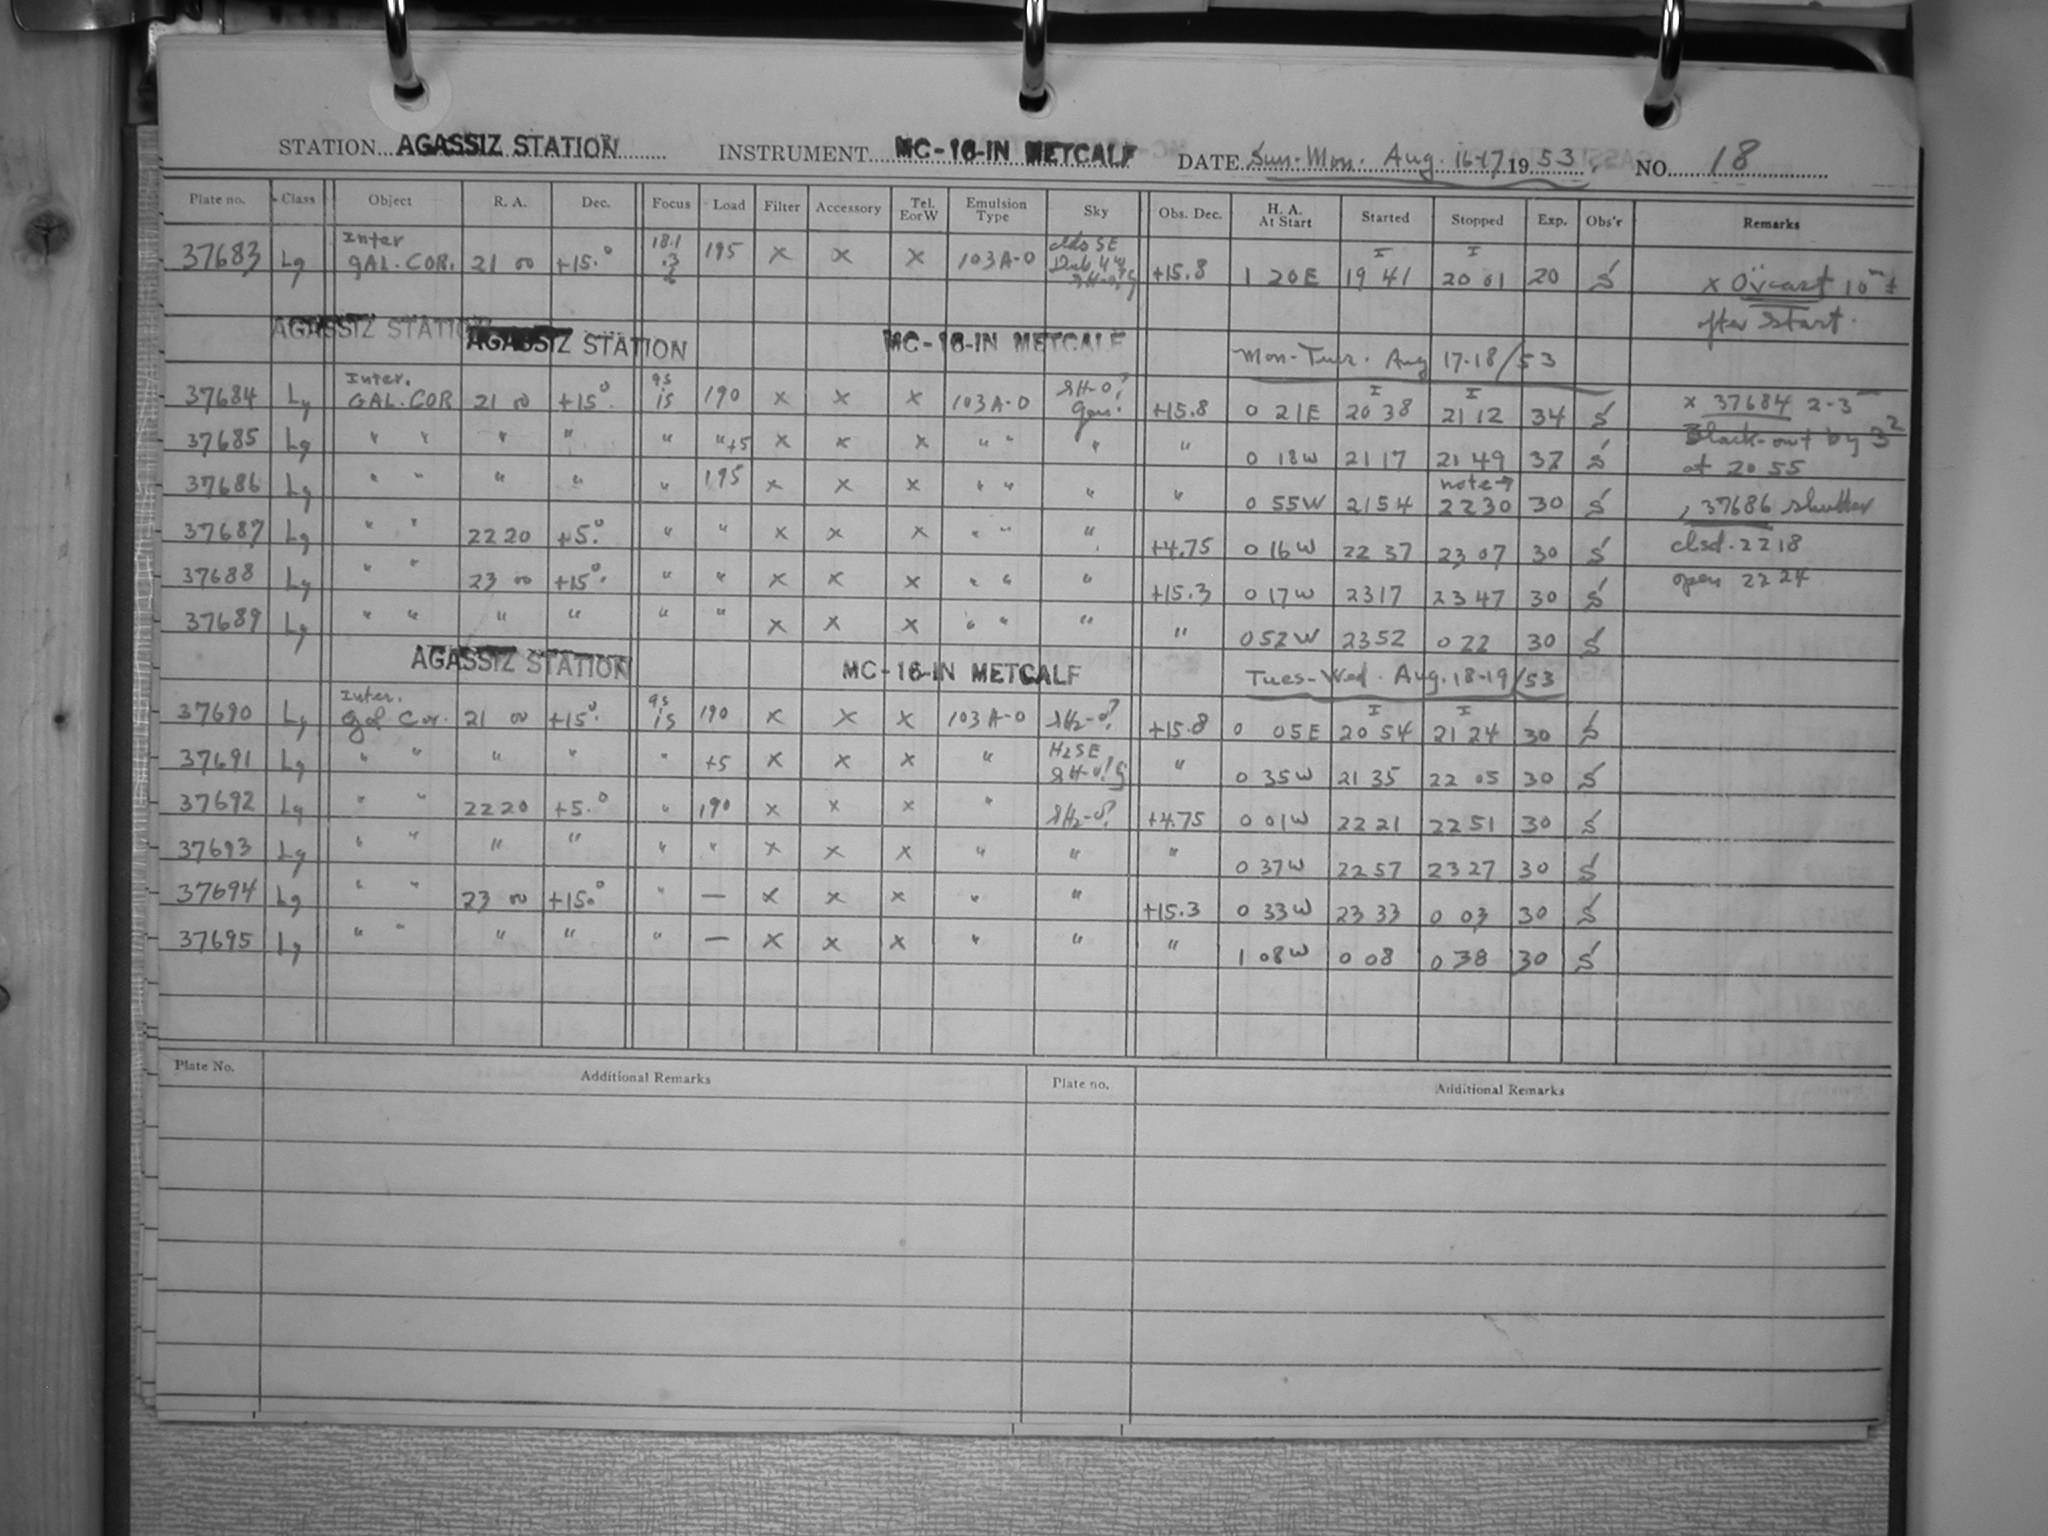 STATION AGASSIZ STATION INSTRUMENT MC-16-IN METCALF DATE Sun.-Mon. Aug. 16-17 1953. NO. 18
Plate no. Class Object R. A. Dec. Focus Load Filter Accessory Tel. EorW Emulsion Type Sky Obs. Dec. H. A. At Start Started Stopped Exp. Obs'r Remarks
37683 Lg Inter GAL. COR. 21 00 +15.° 18.1 .3 195 x x x 103A-O +15.8 1 20E I 19 41 I 20 01 20 S x Ov'cast 10m ±
after start.
AGASSIZ STATION AGASSIZ STATION MC-16-IN METCALF Mon-Tues. Aug 17-18/53
37684 Lg Inter. GAL. COR 21 00 +15°. as is 190 x x x 103A-O +15.8 0 21E I 20 38 I 21 12 34 S x 37684 2-3
37685 Lg " " " " " " +5 x x x " " " " 0 18W 21 17 21 49 32 S Black-out by
at 20 55
37686 Lg " " " " " 195 x x x " " " " 0 55W 21 54 note → 22 30 30 S , 37686 shutter
37687 Lg " " 22 20 +5.° " " x x x " " " +4.75 0 16W 22 37 23 07 30 S clsd. 22 18
37688 Lg " " 23 00 +15°. " " x x x " " " +15.3 0 17W 23 17 23 47 30 S open 22 24
37689 Lg " " " " " " x x x " " " " 0 52W 23 52 0 22 30 S
AGASSIZ STATION MC-16-IN METCALF Tues-Wed. Aug. 18-19/53
37690 Lg Inter. Gal Cor. 21 00 +15°. as is 190 x x x 103A-O +15.8 0 05E I 20 54 I 21 24 30 S
37691 Lg " " " " " +5 x x x " " 0 35W 21 35 22 05 30 S
37692 Lg " " 22 20 +5.° " 190 x x x " +4.75 0 01W 22 21 22 51 30 S
37693 Lg " " " " " " x x x " " " 0 37W 22 57 23 27 30 S
37694 Lg " " 23 00 +15.° " — x x x " " +15.3 0 33W 23 33 0 03 30 S
37695 Lg " " " " " — x x x " " " 1 08W 0 08 0 38 30 S
Plate No. Additional Remarks Plate no. Additional Remarks